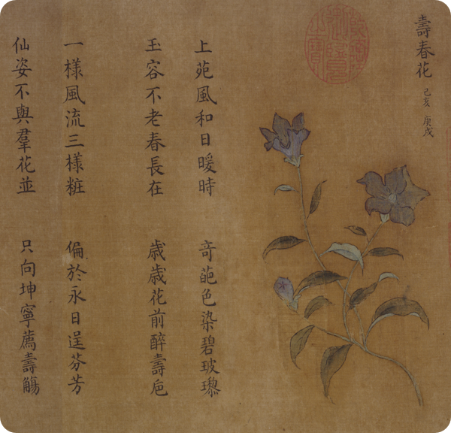 壽春花
己夏 庚戌
上苑風和日暖時
奇葩色染碧玻瓈
玉容不老春長在
歲歲花前醉壽卮
一樣風流三樣粧
偏於永日逞芬芳
仙姿不與羣花並
只向坤寧薦壽觴